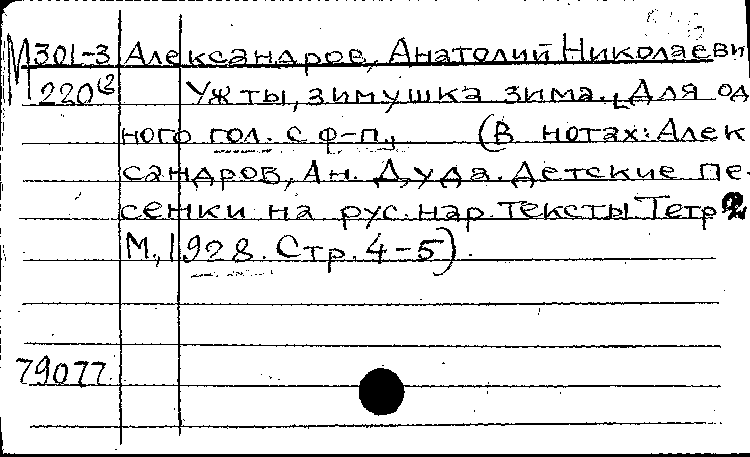 М301-3 Александров, Анатолий Николаеви
220 Уж ты, зимушка зима. [Для од
ного гол. с ф-п., (В нотах: Алек
сандров, Ан. Дуда. Детские пе-
сенки на рус. нар. тексты Тетр 2
М., 1928. Стр. 4-5).
79077